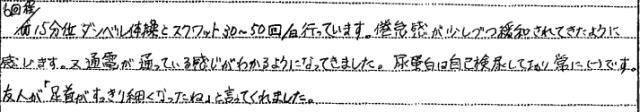 6回程/
毎15分位ダンベル体操とスクワット30~50回/日行っています。倦怠感が少しづつ緩和されてきたように
感じます。又通電が通っている感じがわかるようになってきました。尿蛋白は自己検尿しており常に(-)です。
友人が「足首がすっきり細くなったね」と言ってくれました。